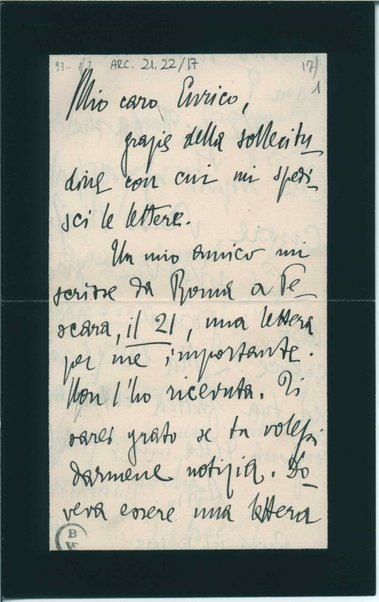 ARC. 21.22/17
17)
1
Mio caro Enrico,
grazie della sollecitu-
dine con cui mi spedi-
sci le lettere.
Un mio amico mi
scrisse da Roma a Pe-
scara, il 21, una lettera
per me importante.
Non l'ho ricevuta. Ti
sarei grato se tu volessi
darmene notizia. Do-
veva essere una lettera